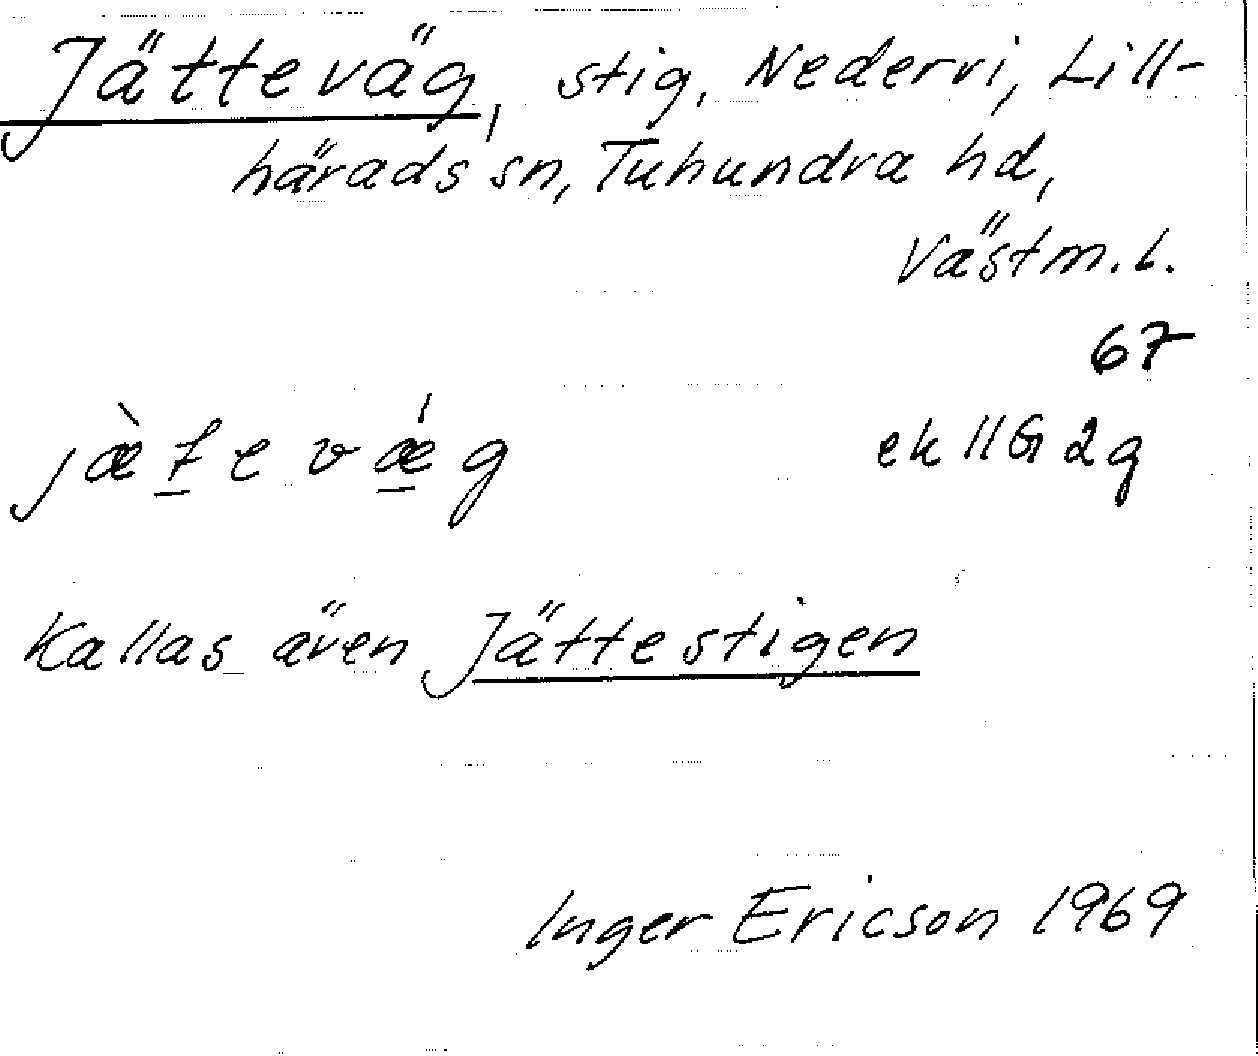 Jätteväg, stig, Nedervi, Lill-
härads sn, Tuhundra hd,
Västm. l.
67
jæ̀t̠evǽ̠g ek 11G 2g
Kallas även Jättestigen
Inger Ericson 1969